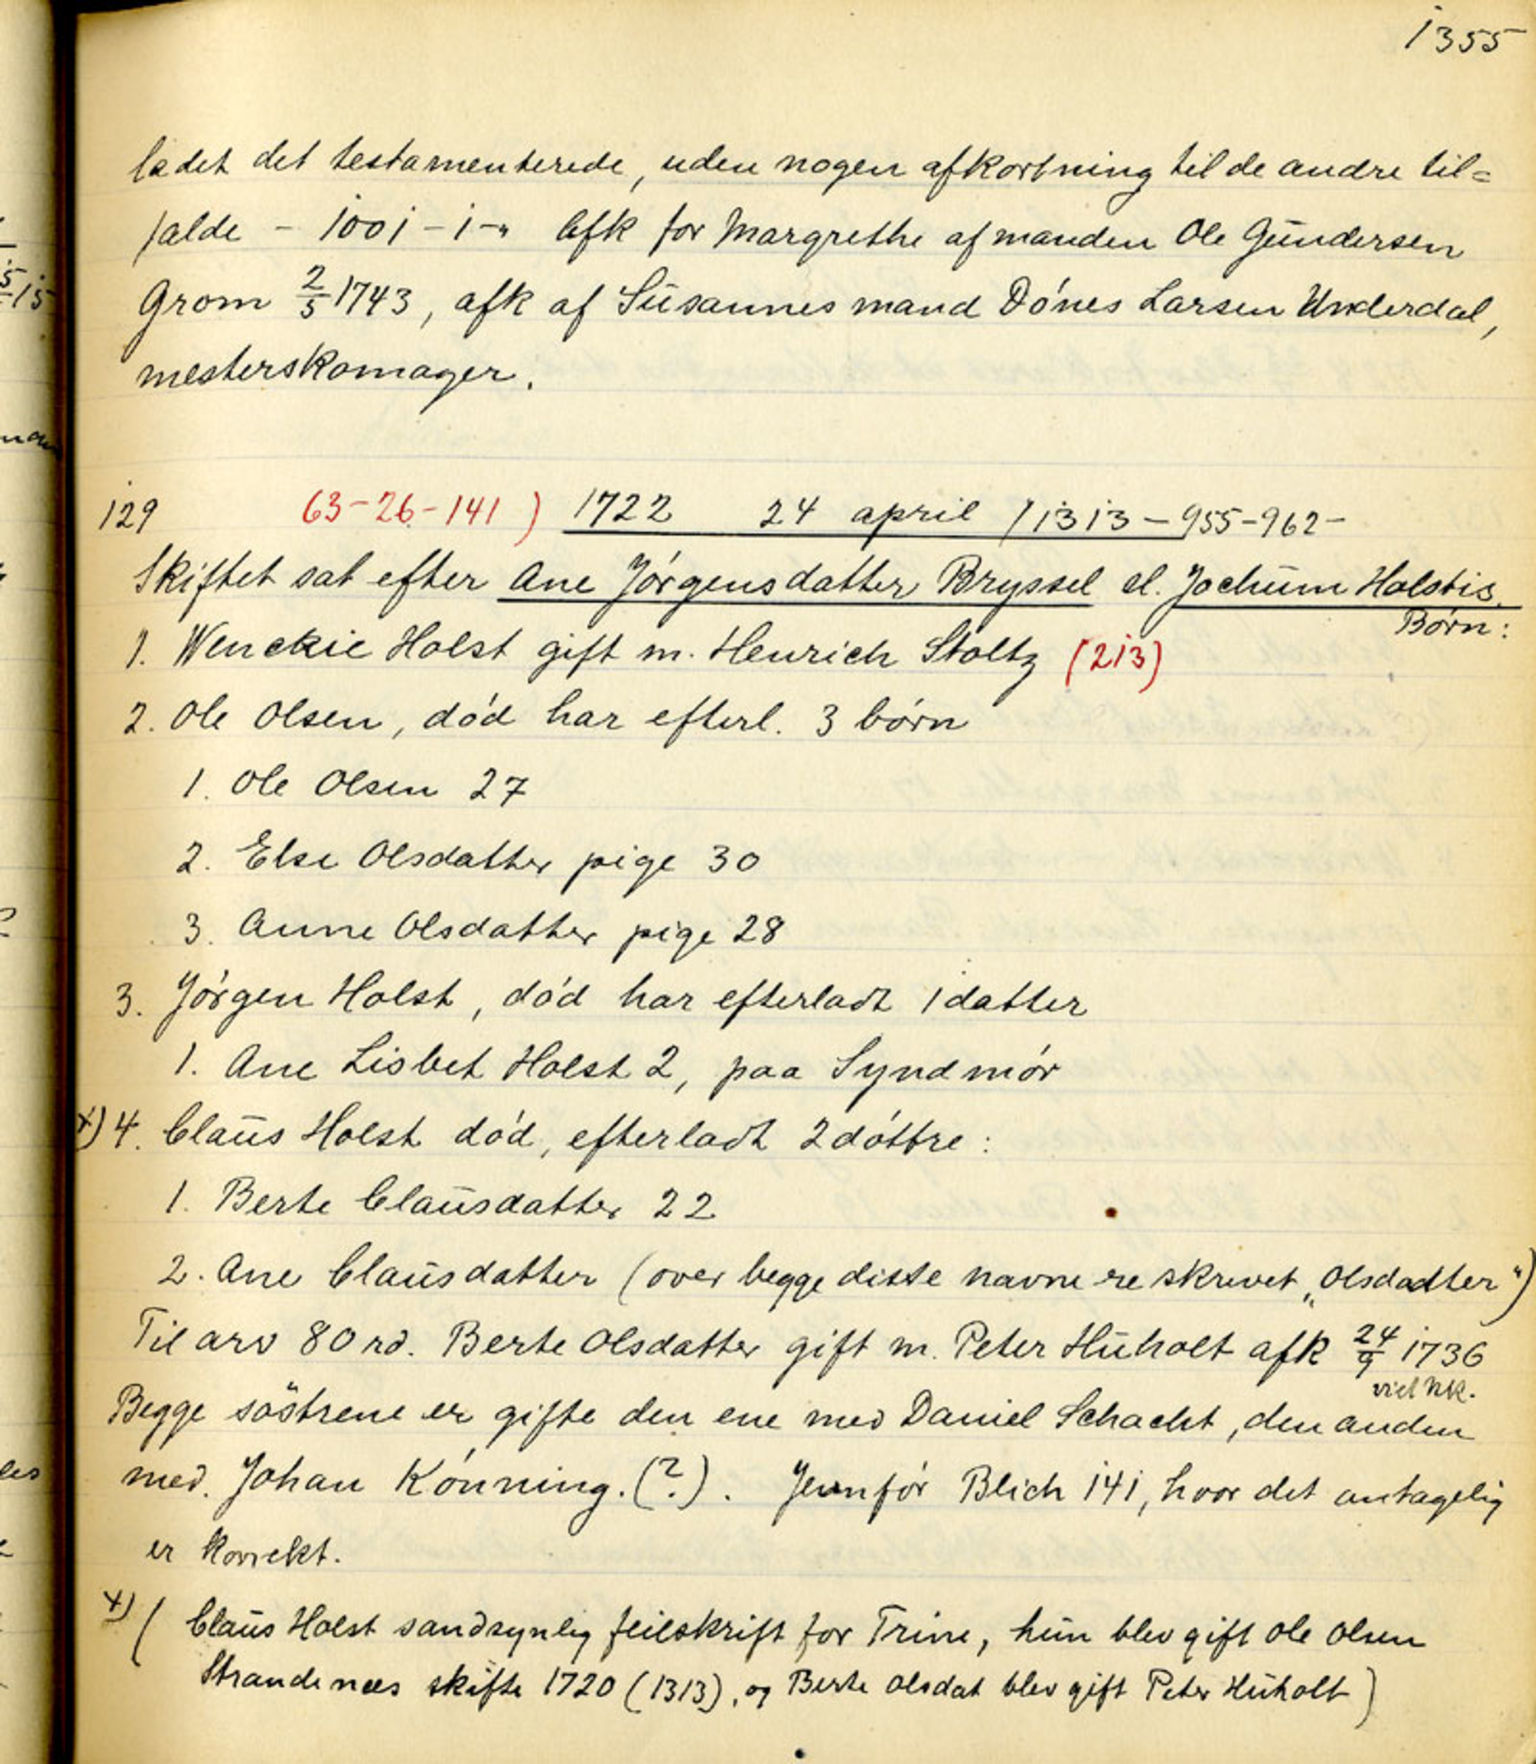 1355
ladet det testamenterede, uden nogen afkortning til de andre til=
falde - 1001-1-" Afk for Margrethe af manden Ole Gundersen
Grom 2/5 1743, afk af Susannes mand Dónes Larsen Underdal,
mesterskomager.
129 63-26-141) 1722 24 april /1313-955-962-
Skiftet sat efter Ane Jórgensdatter Bryssel sl. Jochum Holstis
Børn:
1. Wenckie Holst gift m. Henrich Stoltz (213)
2. Ole Olsen, dód har efterl. 3 bórn
1. Ole Olsen 27
2. Else Olsdatter pige 30
3. Anne Olsdatter pige 28
3. Jórgen Holst, dód har efterladt 1 datter
1. Ane Lisbet Holst 2, paa Syndmór
x) 4. Claus Holst dód, efterladt 2 dóttre:
1. Berte Clausdatter 22
2. Ane Clausdatter (over begge disse navne re skrevet „Olsdadter")
Til arv 80 rd. Berte Olsdatter gift m. Peter Huholt afk 24/9 1736
viet Nk.
Begge söstrene er gifte den ene med Daniel Schacht, den anden
med. Johan Kónning. (?). Jevnfór Blich 141, hvor det antagelig
er korrekt.
x) ( Claus Holst sandsynlig feilskrift for Trine, hun blev gift Ole Olsen
Strandenæs skifte 1720 (1313), og Berte Olsdat blev gift Peter Huholt)